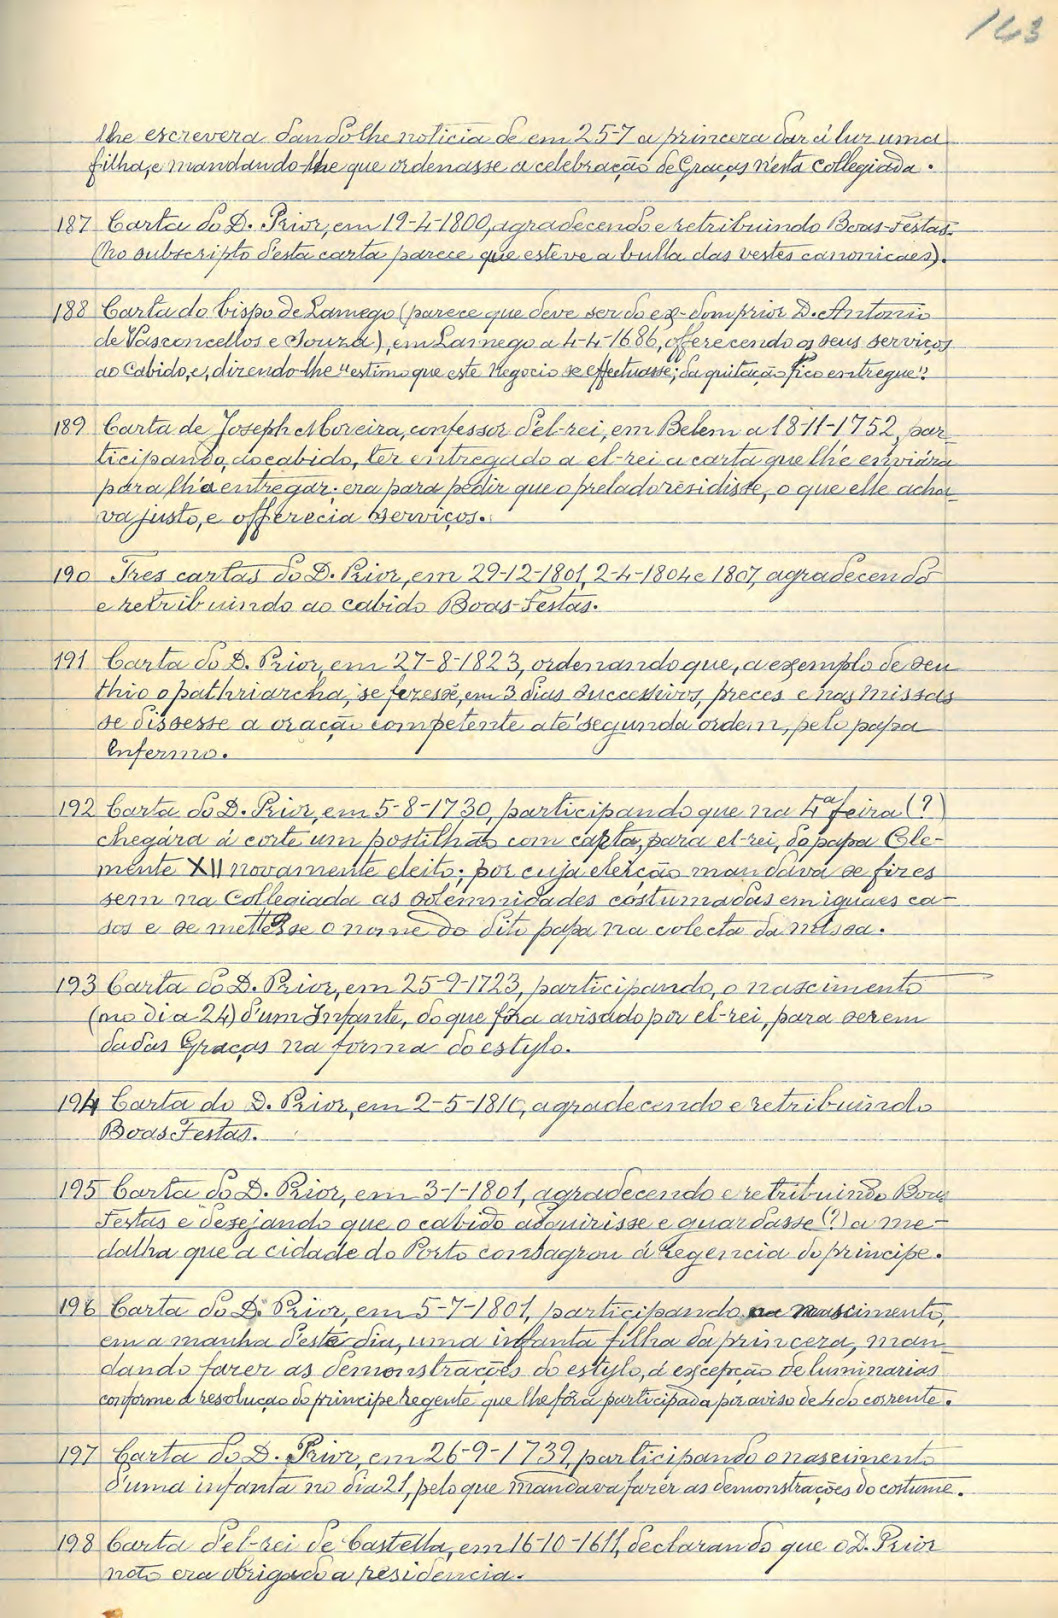 143
lhe escrevera dando-lhe noticia de em 25-7 a princeza dar á luz uma
filha, e mandando-lhe que ordenasse a celebração de Graças nesta Collegiada.
187 Carta do D. Prior, em 19-4-1800, agradecendo e retribuindo Boas-Festas.
(No subscripto d'esta carta parece que esteve a bulla das vestes canonicaes).
188 Carta do bispo de Lamego (parece que deve ser do ex-dom prior D. Antonio
de Vasconcellos e Souza), em Lamego a 4-4-1686, offerecendo os seus serviços
ao Cabido, e, dizendo-lhe "estimo que este negocio se effectuasse; da quitação fico entregue".
189 Carta de Joseph Moreira, confessor d'el-rei, em Belem a 18-11-1752, par-
ticipando, ao cabido, ter entregado a el-rei a carta que lhe enviára
para lh'a entregar; era para pedir que o prelado residisse, o que elle acha-
va justo, e offerecia serviços.
190 Tres cartas do D. Prior, em 29-12-1801, 2-4-1804 e 1807, agradecendo
e retribuindo ao cabido Boas-Festas.
191 Carta do D. Prior, em 27-8-1823, ordenando que, a exemplo de seu
thio o pathriarcha, se fezesse, em 3 dias successivos, preces e nas missas
se dissesse a oração competente até segunda ordem, pelo papa
enfermo.
192 Carta do D. Prior, em 5-8-1730, participando que na 4ª feira (?)
chegára á corte um postilhão com carta, para el-rei, do papa Cle-
mente XII novamente eleito; por cuja eleição mandava se fizes
sem na Collegiada as solemnidades costumadas em iguaes ca-
sos e se mettesse o nome do dito papa na colecta da missa.
193 Carta do D. Prior, em 25-9-1723, participando, o nascimento
(no dia 24) d'um Infante, do que fôra avisado por el-rei, para serem
dadas Graças na forma do estylo.
194 Carta do D. Prior, em 2-5-1810, agradecendo e retribuindo
Boas Festas.
195 Carta do D. Prior, em 3-1-1801, agradecendo e retribuindo Boas
Festas e desejando que o cabido adquirisse e guardasse (?) a me-
dalha que a cidade do Porto consagrou á Regencia do principe.
196 Carta do D. Prior, em 5-7-1801, participando nascimento,
em a manhã d'este dia, uma infanta filha da princeza, man-
dando fazer as demonstrações do estylo, á excepção de luminarias
conforme a resolução do principe Regente que lhe fôra participada por aviso de 4 do corrente.
197 Carta do D. Prior, em 26-9-1739, participando o nascimento
d'uma infanta no dia 21, pelo que mandava fazer as demonstrações do costume.
198 Carta d'el-rei de Castella, em 16-10-1611, declarando que o D. Prior
não era obrigado a residencia.